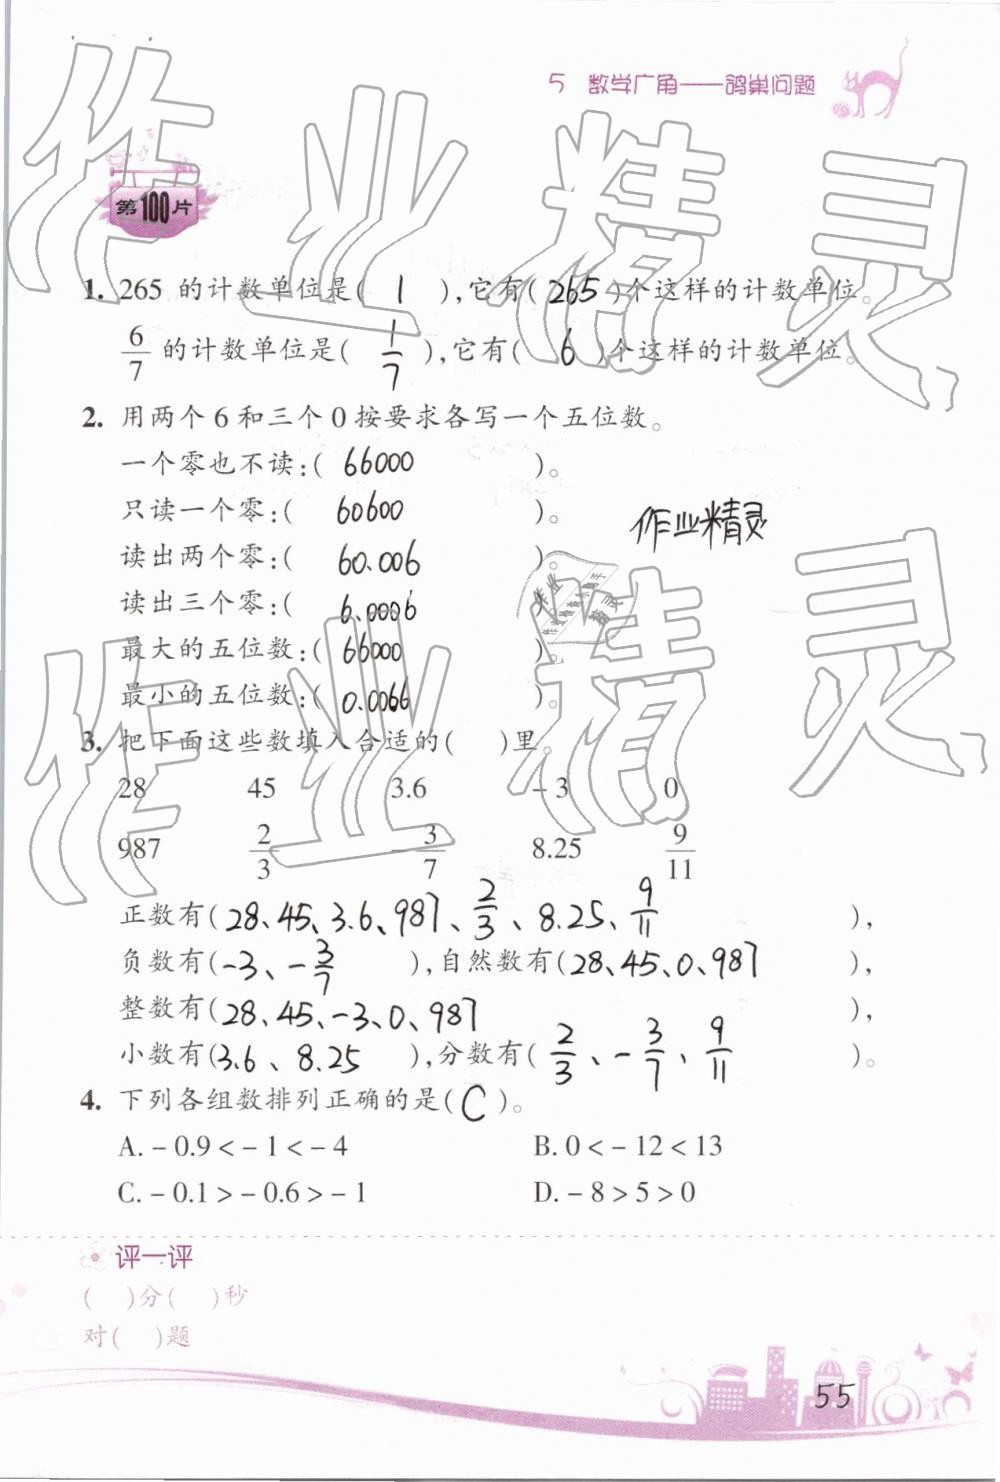 5 数学广角——鸽巢问题
第100片
1. 265 的计数单位是( 1 ),它有( 265 )个这样的计数单位。
6/7 的计数单位是( 1/7 ),它有( 6 )个这样的计数单位。
2. 用两个 6 和三个 0 按要求各写一个五位数。
一个零也不读:( 66000 )。
只读一个零:( 60600 )。
作业精灵
读出两个零:( 60.006 )。
读出三个零:( 6.0006 )。
最大的五位数:( 66000 )。
最小的五位数:( 0.0066 )。
3. 把下面这些数填入合适的( )里。
28 45 3.6 -3 0
987 2/3 -3/7 8.25 9/11
正数有( 28、45、3.6、987、2/3、8.25、9/11 ),
负数有( -3、-3/7 ),自然数有( 28、45、0、987 ),
整数有( 28、45、-3、0、987 ),
小数有( 3.6、8.25 ),分数有( 2/3、-3/7、9/11 )。
4. 下列各组数排列正确的是( C )。
A. -0.9<-1<-4 B. 0<-12<13
C. -0.1>-0.6>-1 D. -8>5>0
评一评
( )分( )秒
对( )题
55
作业精灵
作业精灵